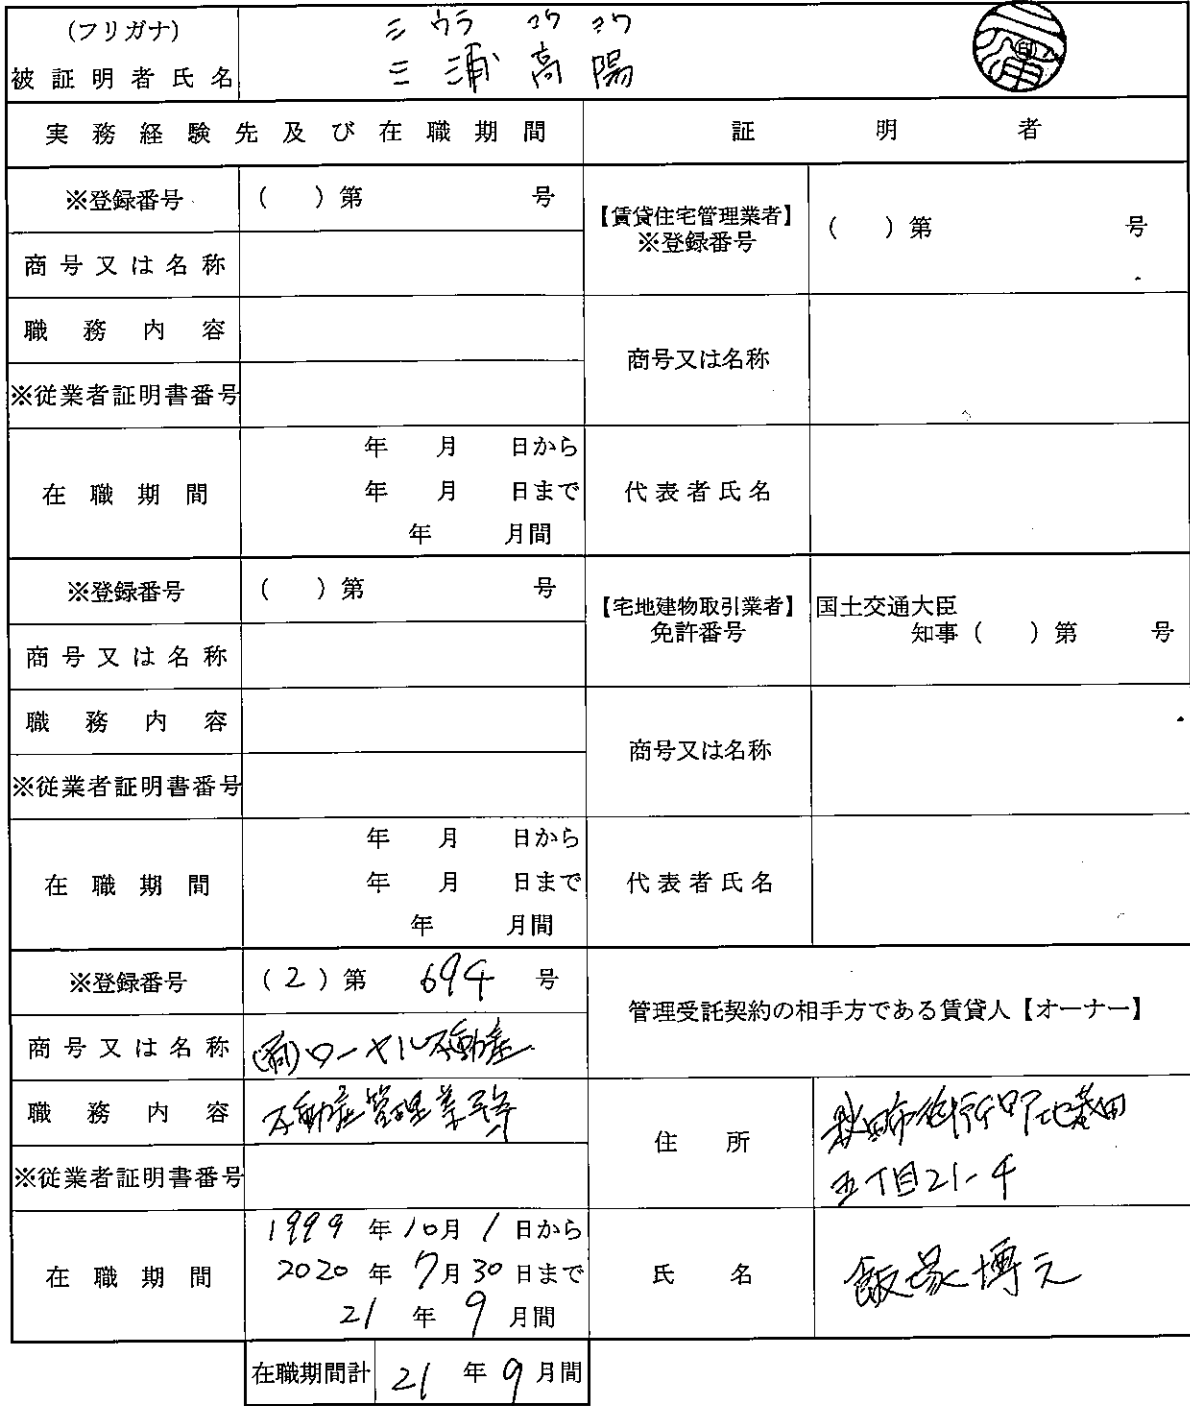 (フリガナ)
ミウラ コウ コウ
被証明者氏名
三浦高陽
印
実務経験先及び在職期間
証明者
※登録番号
( )第 号
【賃貸住宅管理業者】
※登録番号
( )第 号
商号又は名称
職務内容
商号又は名称
※従業者証明書番号
在職期間
年 月 日から
年 月 日まで
年 月間
代表者氏名
※登録番号
( )第 号
【宅地建物取引業者】
免許番号
国土交通大臣
知事( )第 号
商号又は名称
職務内容
商号又は名称
※従業者証明書番号
在職期間
年 月 日から
年 月 日まで
年 月間
代表者氏名
※登録番号
(2)第 694 号
管理受託契約の相手方である賃貸人【オーナー】
商号又は名称
ローヤル不動産
職務内容
不動産管理業務
住所
秋田市
五丁目21-4
※従業者証明書番号
在職期間
1999年10月1日から
2020年7月30日まで
21年9月間
氏名
飯塚博元
在職期間計
21年9月間